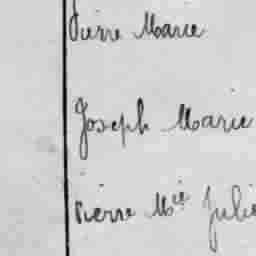 Pierre Marie
Joseph Marie
Pierre Mie Julie